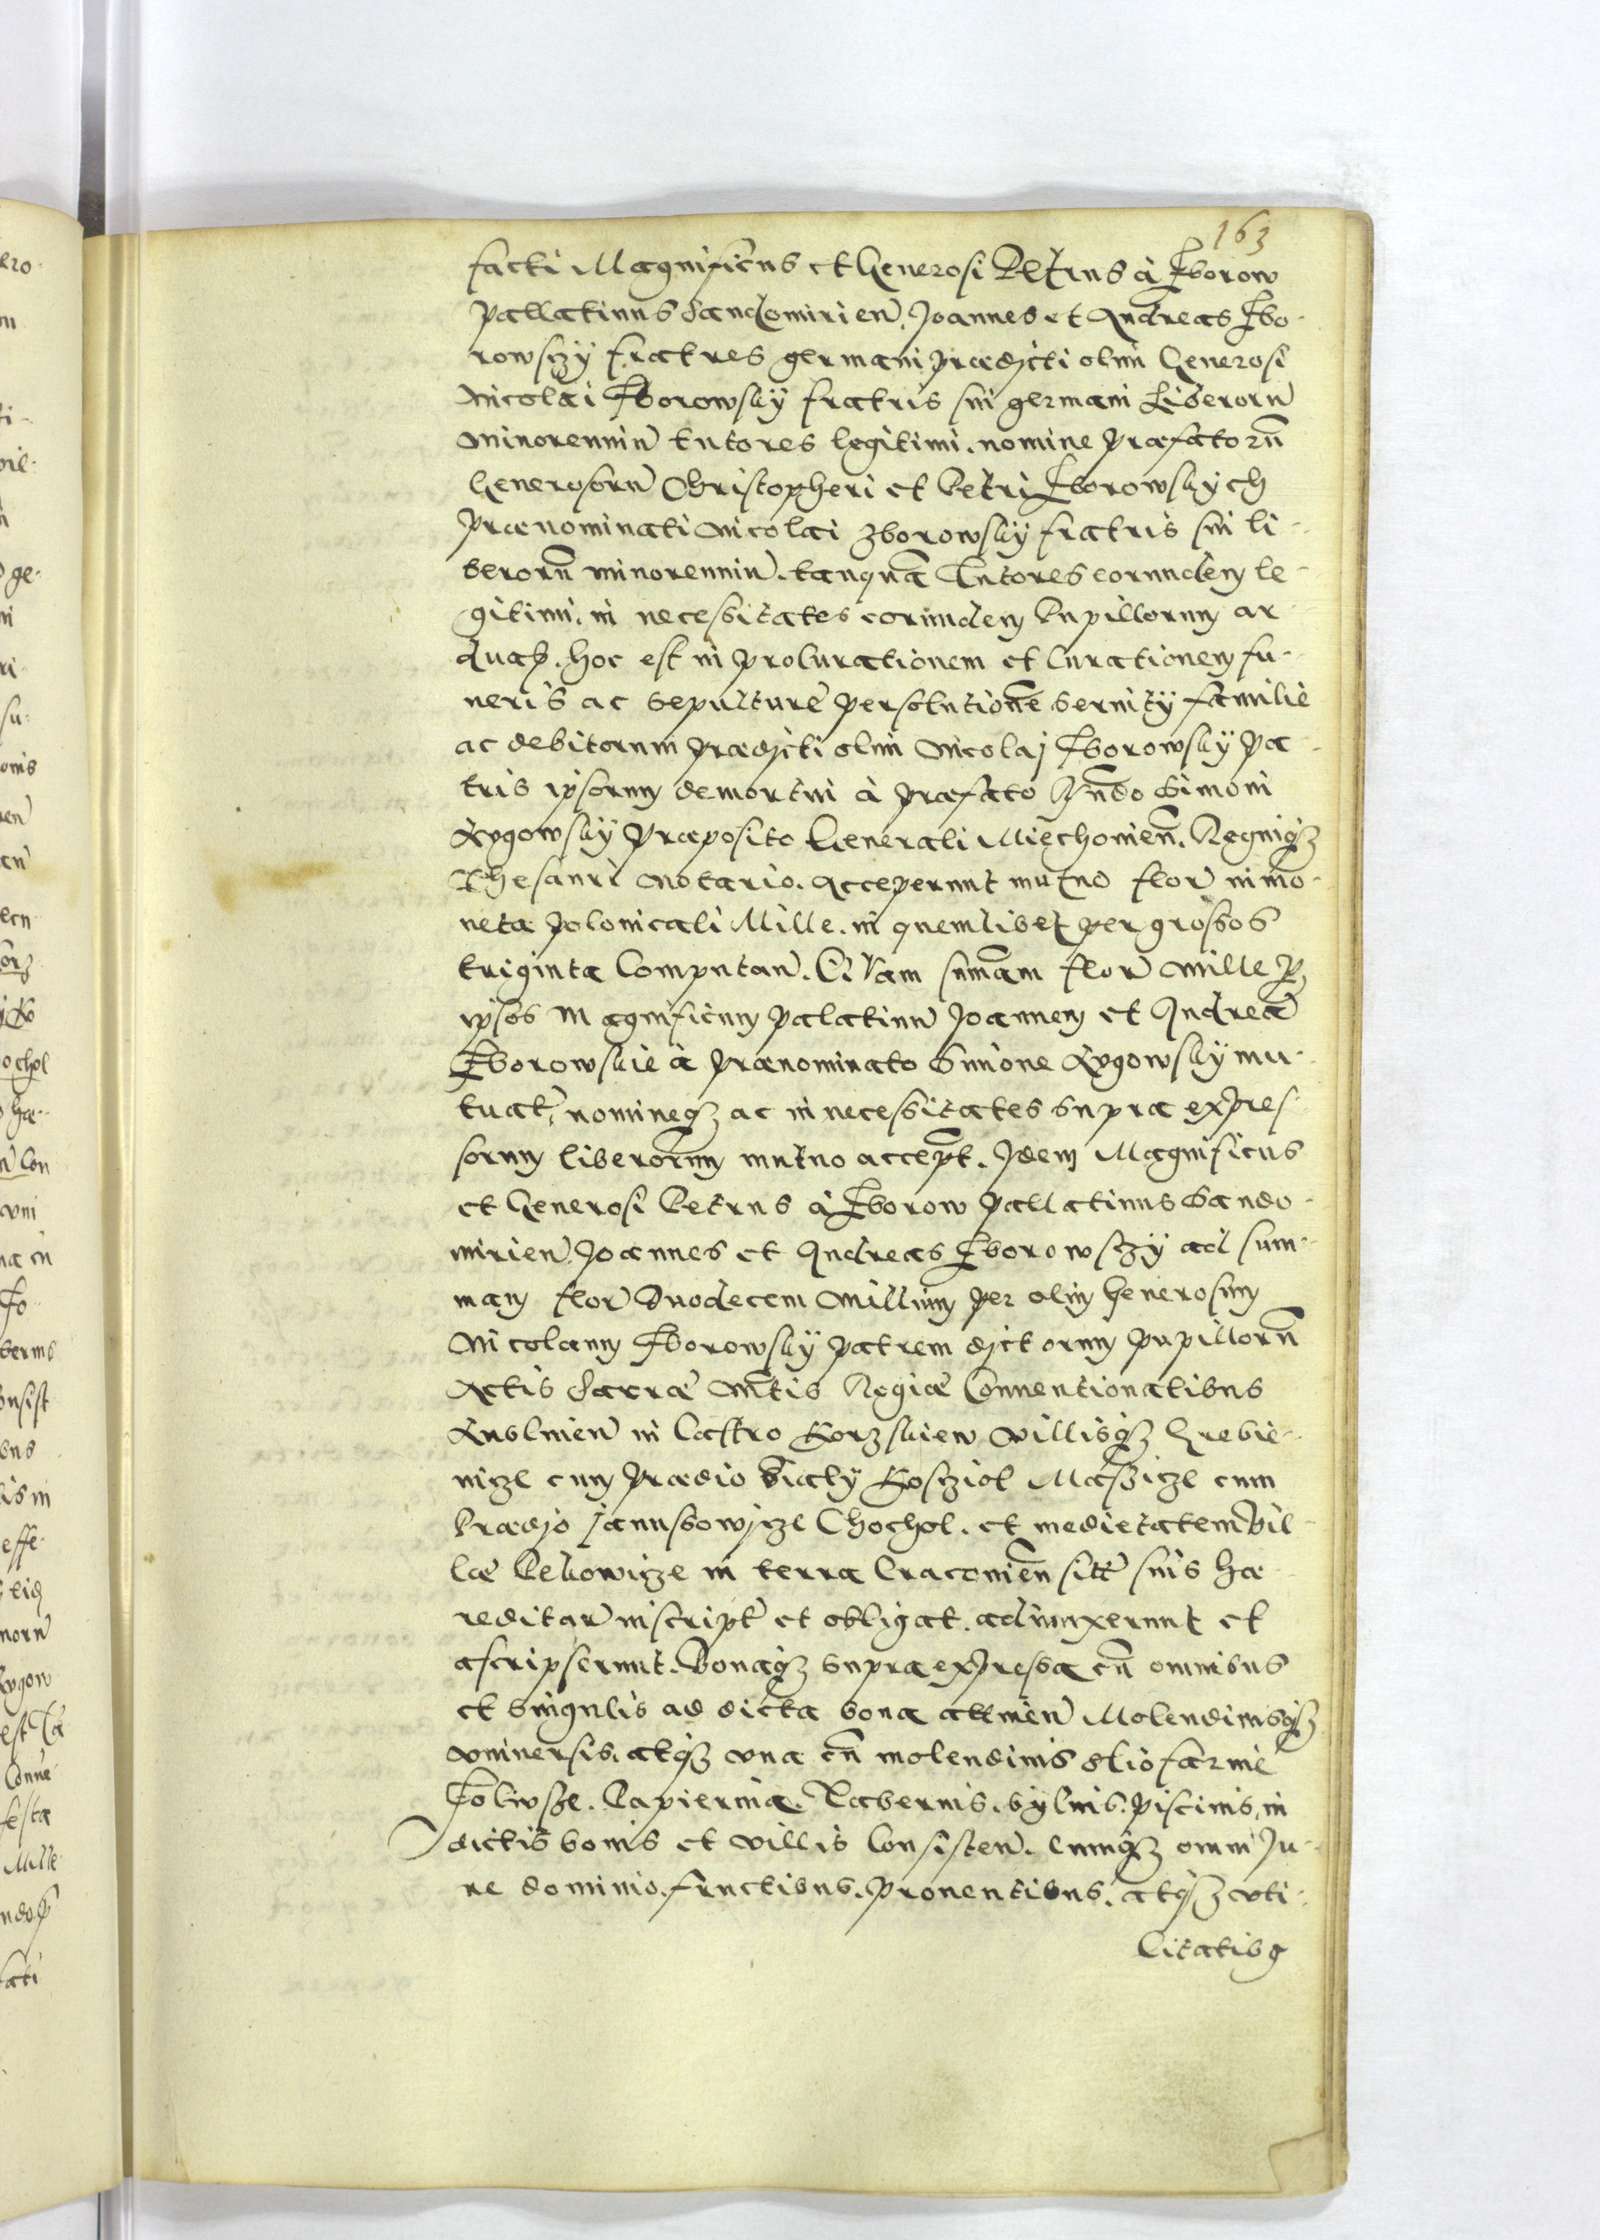 163
facti Magnificus et Generosi Petrus à Zborow
Pallatinus Sandomirien̄. Joannes et Andreas Zbo-
rowsczÿ fratres germani prædicti olim Generosi
Nicolai Zborowskÿ fratris sui germani Liberorū
minorenniū tutores legitimi. nomine præfatorū
Generosorū Christopheri et Petri Zborowskych
prænominati Nicolai Zborowskÿ fratris sui li-
berorū minorenniū. tanquā Tutores eorundem le-
gitimi. in necessitates eorundem Pupillorum ar-
duas. hoc est in procurationem et Curationem fu-
neris ac sepulturæ persolutionē servitÿ familiæ
ac debitorum prædicti olim Nicolaj Zborowskÿ pa-
tris ipsorum demortui à præfato Vn̄do Simoni
Ługowskÿ Præposito Generali Miechovien̄. Regniq₃
Thesauri Notario. acceperunt mutuo flor̄ in mo-
neta polonicali Mille. in quemlibet per grossos
triginta Computan̄. Quam sum̄am flor̄ Mille p̱
ipsos Magnificum Palatinū Joannem et Andreā
Zborowskie à prænominato Simone Ługowskÿ mu-
tuat̄, nomineq₃ ac in necessitates supra expres-
sorum liberorum mutuo accept̄. Idem Magnificus
et Generosi Petrus à Zborow Pallatinus Sando-
mirien̄. Joannes et Andreas Zborowsczÿ ad sum-
mam flor̄ Duodecem Millium per olim Generosum
Nicolaum Zborowskÿ patrem dictorum pupillorū
Actis Sacræ M̄tis Regiæ Conventionalibus
Lublinen̄ in Castro Korzkiew villisq₃ Grebie-
nicze cum Prædio Biały Kosczioł Maszicze cum
Prædjo Janussowjcze Chochol. et medietatem vil-
læ Pekowicze in terra Cracovien̄ sitt̄ suis hæ-
reditar̄ inscript̄ et obligat. adiunxerunt et
ascripserunt. Bonaq₃ supra expressa cū omnibus
et singulis ad dicta bona attinen̄ Molendinisq₃
vniuersis. atq₃ vna cū molendinis olio farinæ
Papiernia. Tabernis. Sylvis. piscinis, in
dictis bonis et villis Consisten̄. Cumq₃ omni Ju-
re dominio. fructibus. proventibus. atq₃ vti-
litatibq